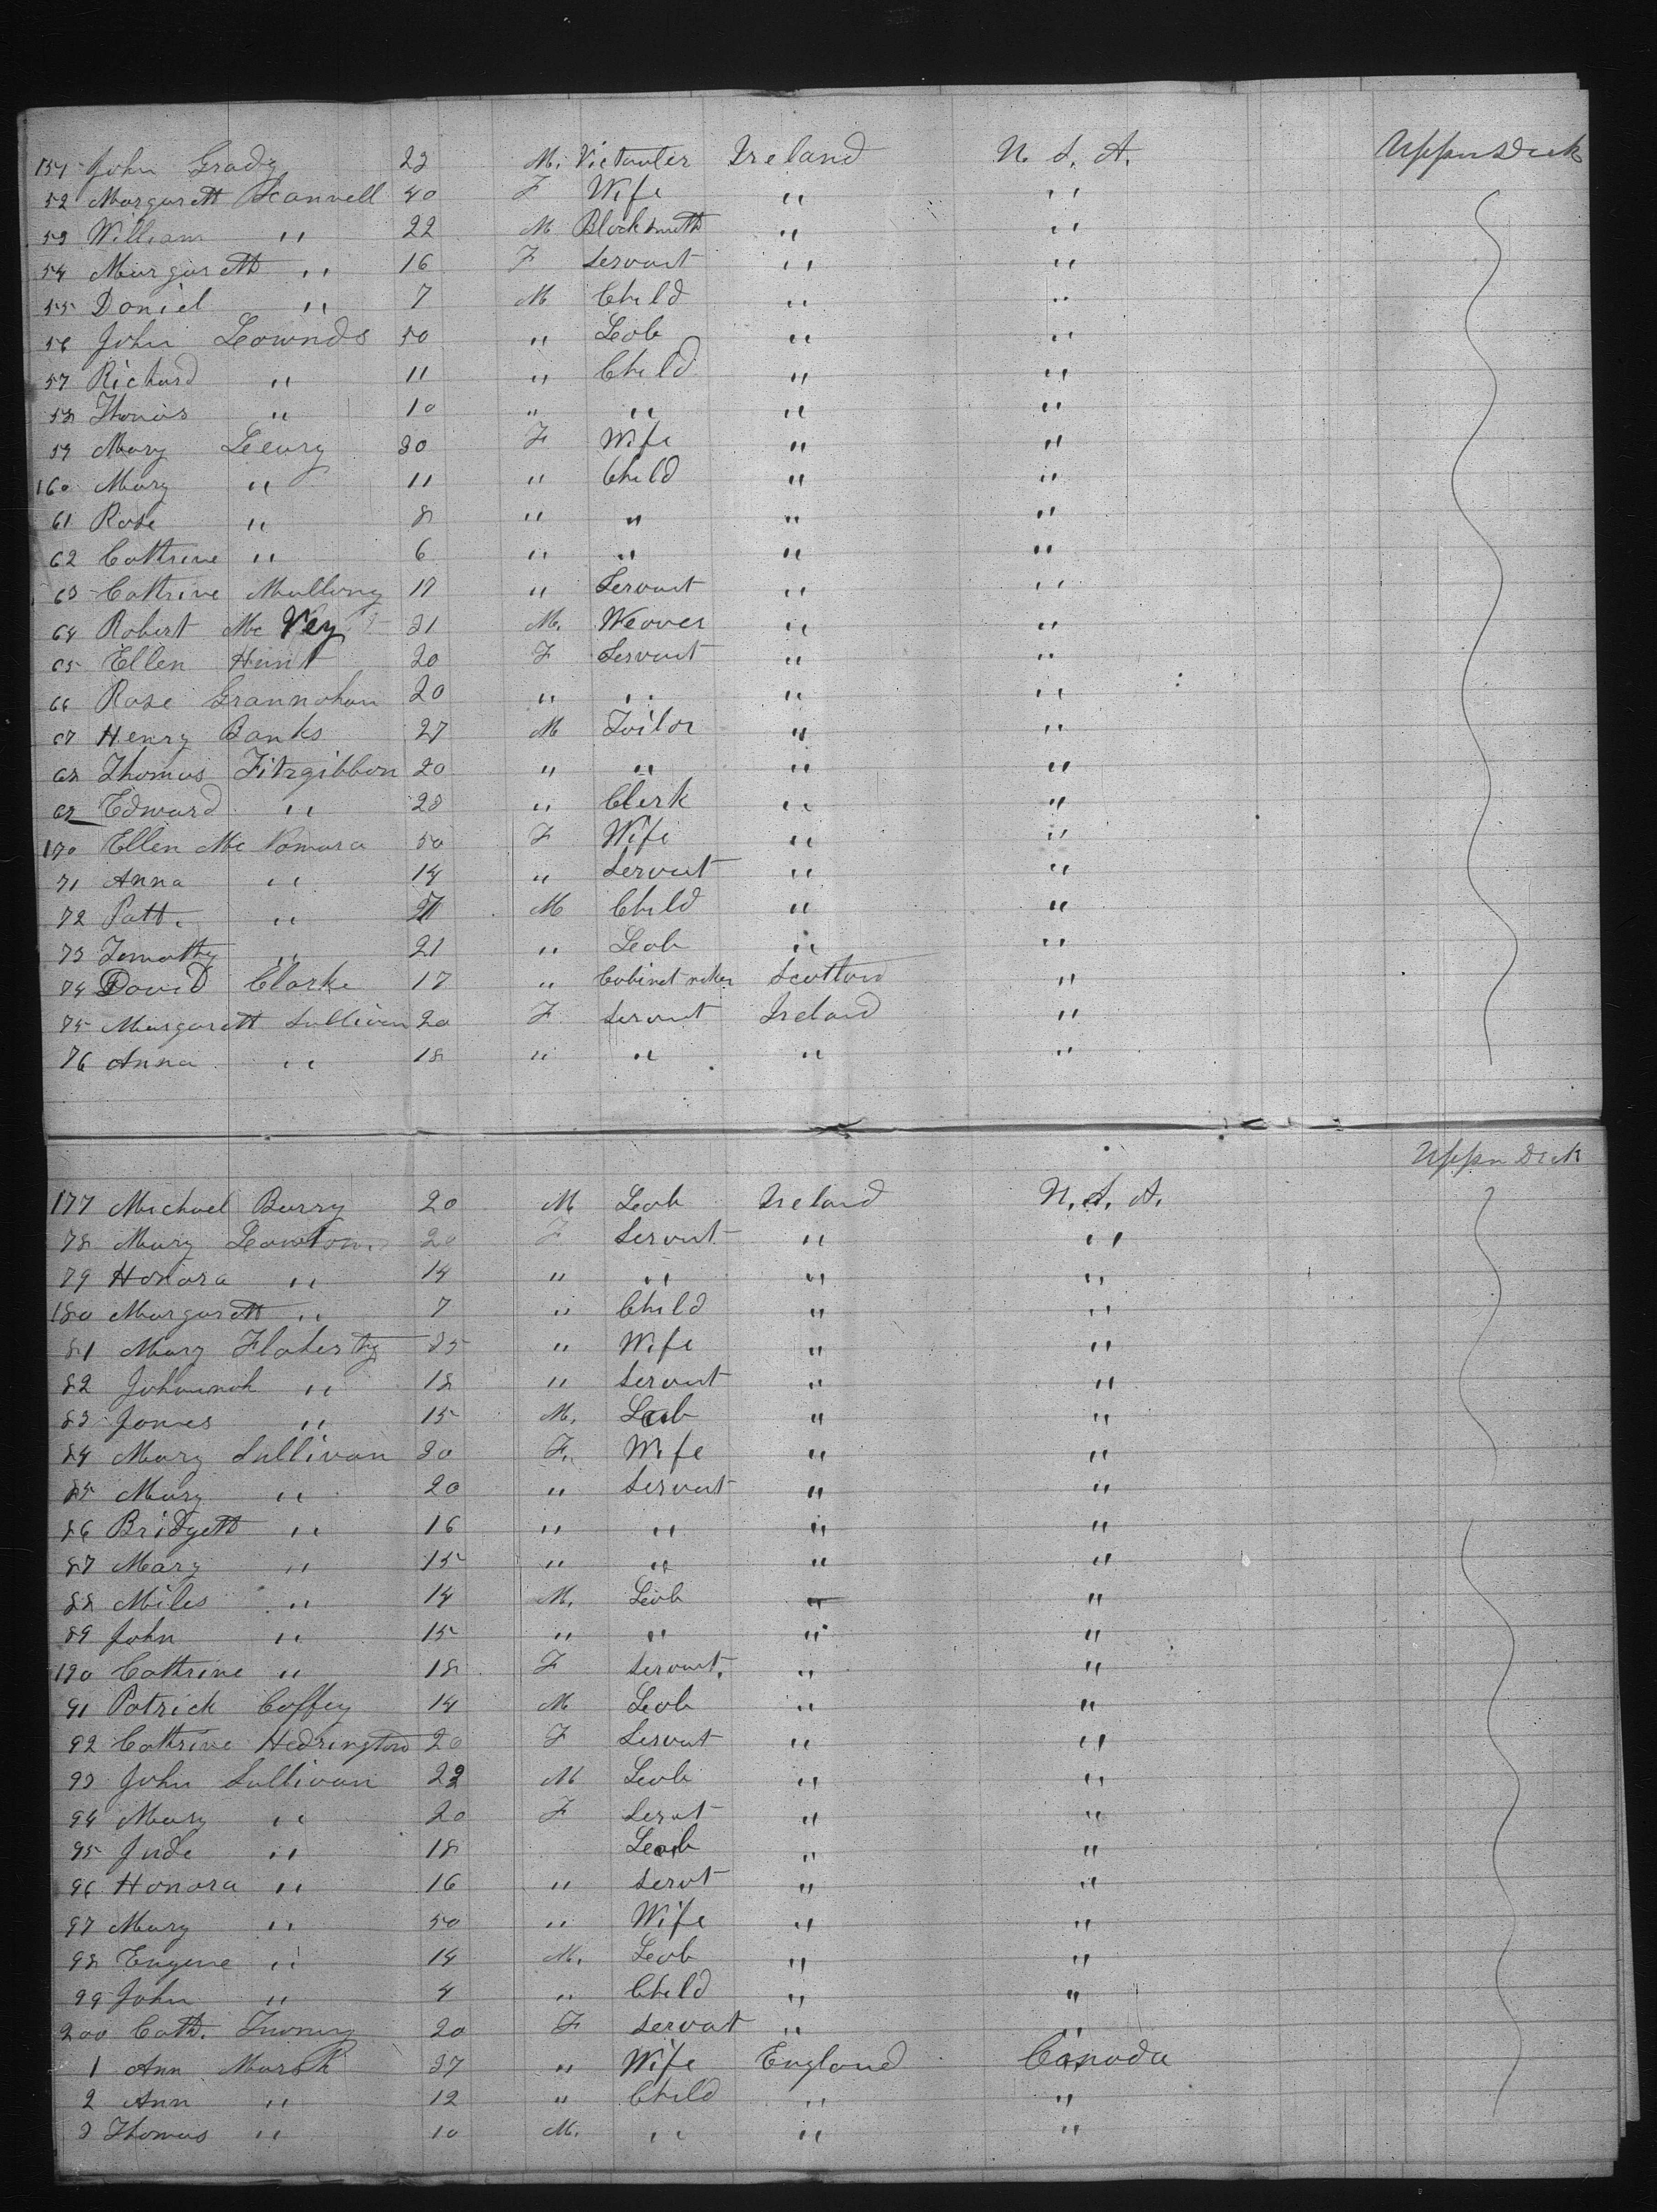 151 John Grady 23 M. Victualer Ireland U. S. A. Upper Deck
52 Margarett Scannell 40 F Wife " "
53 William " 22 M Blacksmith " "
54 Margarett " 16 F Servant " "
55 Daniel " 7 M Child " "
56 John Lownds 50 " Leab " "
57 Richard " 11 " Child " "
58 Thomas " 10 " " " "
59 Mary Leary 30 F Wife " "
160 Mary " 11 " Child " "
61 Rose " 8 " " " "
62 Cathrine " 6 " " " "
63 Cathrine Mullony 17 " Servant " "
64 Robert Mc Vey 21 M. Weaver " "
65 Ellen Hunt 20 F Servant " "
66 Rose Grannahan 20 " " " "
67 Henry Banks 27 M Tailor " "
68 Thomas Fitzgibbon 20 " " " "
69 Edward " 28 " Clerk " "
170 Ellen Mc Namara 50 F Wife " "
71 Anna " 14 " Servant " "
72 Patt. " M Child " "
73 Timothy " 21 " Leab " "
74 David Clarke 17 " Cabinet mker Scotland "
75 Margarett Sullivan 20 F Servant Ireland "
76 Anna " 18 " " " "
Upper Deck
177 Michael Barry 20 M Leab Ireland U. S. A.
78 Mary Lawton. 20 F Servant " "
79 Honora " 14 " " " "
180 Margarett " 7 " Child " "
81 Mary Flaherty 35 " Wife " "
82 Johannah " 18 " Servant " "
83 James " 15 M. Leab " "
84 Mary Sullivan 30 F. Wife " "
85 Mary " 20 " Servant " "
86 Bridgett " 16 " " " "
87 Mary " 15 " " " "
88 Miles " 14 M. Leab " "
89 John " 15 " " " "
190 Cathrine " 18 F Servant. " "
91 Patrick Coffey 14 M Leab " "
92 Cathrine Hedrington 20 F Servant " "
93 John Sullivan 22 M Leab " "
94 Mary " 20 F Servt " "
95 Jude " 18 Leab " "
96 Honora " 16 " Servt " "
97 Mary " 50 " Wife " "
98 Eugene " 14 M. Leab " "
99 John " 4 " Child " "
200 Cath. Twomy 20 F Servant " "
1 Ann Marsh 37 " Wife England Canada
2 Ann " 12 " Child " "
3 Thomas " 10 M. " " "